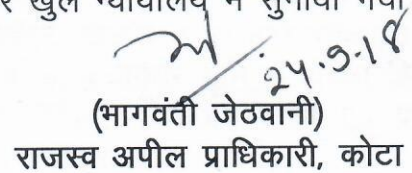 र खुले न्यायालय में सुनाया गया
24.9.18
(भागवंती जेठवानी)
राजस्व अपील प्राधिकारी, कोटा